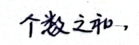 个数之和，